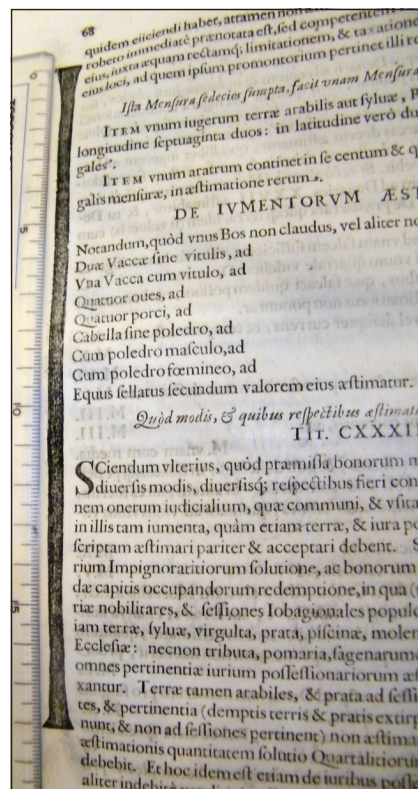 68
quidem eiiciendi habet, attamen non
robeto immediatè prænotata est, sed competentem
eius, iuxta æquam rectamq; limitationem, & taxatione
eius loci, ad quem ipsum promontorium pertinet illi re
Ista Mensura sedecies sumpta, facit vnam Mensura
ITEM vnum iugerum terræ arabilis aut syluæ, p
longitudine septuaginta duos: in latitudine verò du
gales.
ITEM vnum aratrum continet in se centum & q
galis mensuræ, in æstimatione rerum.
DE IVMENTORVM ÆST
Notandum, quòd vnus Bos non claudus, vel aliter no
Duæ Vaccæ sine vitulis, ad
Vna Vacca cum vitulo, ad
Quatuor oues, ad
Quatuor porci, ad
Cabella sine poledro, ad
Cum poledro masculo, ad
Cum poledro fœmineo, ad
Equus sellatus secundum valorem eius æstimatur.
Quòd modis, & quibus respectibus æstimati
TIT. CXXXII
SCiendum vlterius, quòd præmissa bonorum m
diuersis modis, diuersisq; respectibus fieri con
nem onerum iudicialium, quæ communi, & vsita
in illis tam iumenta, quàm etiam terræ, & iura po
scriptam æstimari pariter & acceptari debent. S
rium Impignoratitiorum solutione, ac bonorum
dæ capitis occupandorum redemptione, in qua (
riæ nobilitares, & sessiones Iobagionales popule
iam terræ, syluæ, virgulta, prata, piscinæ, molen
Ecclesiæ: necnon tributa, pomaria, sagenarum
omnes pertinentiæ iurium possessionariorum æs
xantur. Terræ tamen arabiles, & prata ad sess
tes, & pertinentia (demptis terris & pratis extirp
nunt, & non ad sessiones pertinent) non æstima
æstimationis quantitatem solutio Quartalitiorum
debebit. Et hoc idem est etiam de iuribus posses
aliter indebitè